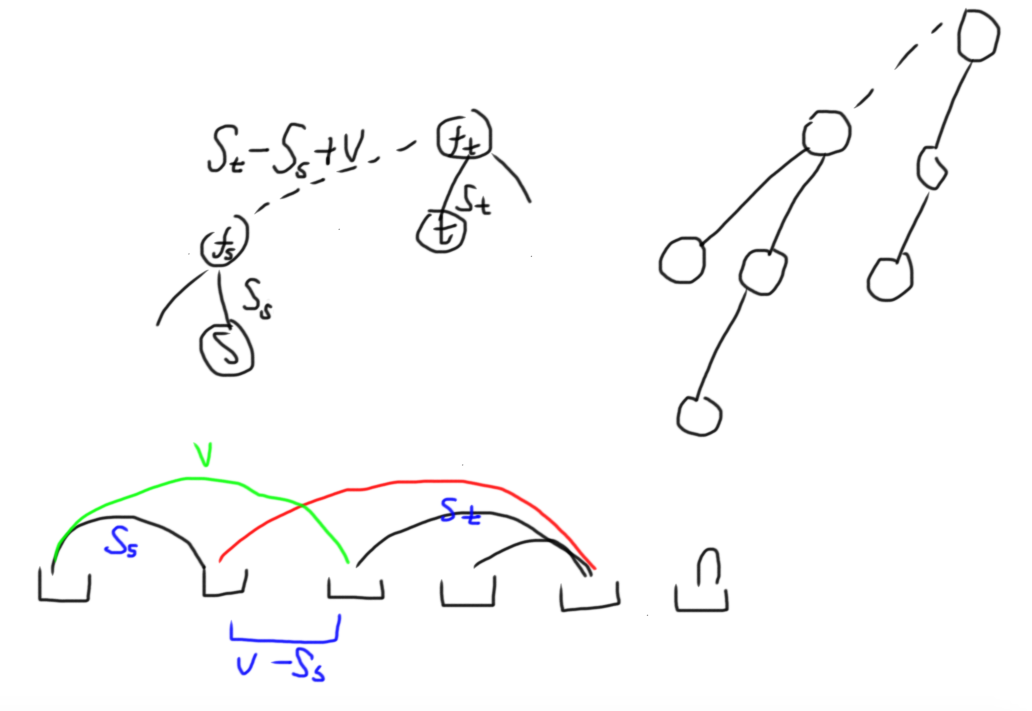 S_t-S_s+V
f_t
S_t
t
f_s
S_s
S
V
S_s
S_t
V-S_s